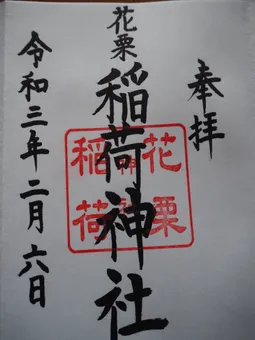 奉拝
花栗
稲荷神社
令和三年二月六日
花栗
稲荷